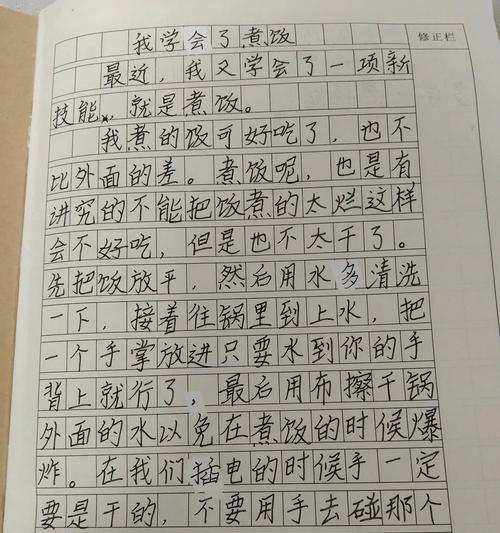 我学会了煮饭
修正栏
最近，我又学会了一项新
技能，就是煮饭。
我煮的饭可好吃了，也不
比外面的差。煮饭呢，也是有
讲究的不能把饭煮的太烂这样
会不好吃，但是也不太干了。
先把饭放平，然后用水多清洗
一下，接着住锅里到上水，把
一个手掌放进只要水到你的手
背上就行了，最后用布擦干锅
外面的水以免在煮饭的时候爆
炸。在我们插电的时候手一定
要是干的，不要用手去碰那个